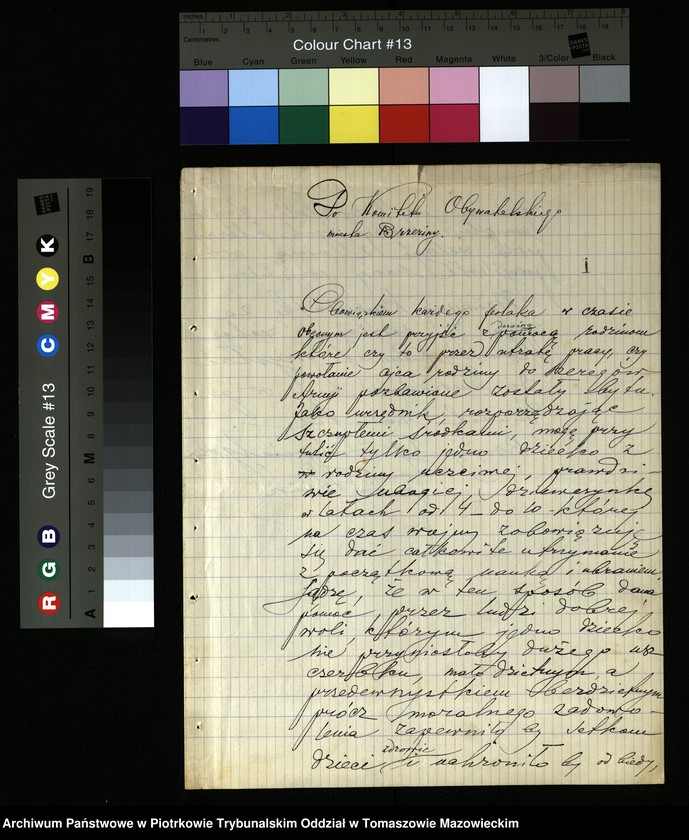 Inches 1 2 3 4 5 6 7 8
Centimetres 1 2 3 4 5 6 7 8 9 10 11 12 13 14 15 16 17 18 19
Colour Chart #13
Blue Cyan Green Yellow Red Magenta White 3/Color Black
Grey Scale #13
R G B C M Y K
A 1 2 3 4 5 6 M 8 9 10 11 12 13 14 15 B 17 18 19
Do Komitetu Obywatelskiego
miasta Brzeziny.
1
Obowiązkiem każdego polaka w czasie
obecnym jest przyjść z pomocą rodzinom
doraźną
które czy to przez utratę pracy, czy
powołanie ojca rodziny do szeregów
Armji pozbawione zostały bytu.
Jako urzędnik, rozporządzając
szczupłemi środkami, mogę przy
tulić tylko jedno dziecko z
w rodziny uczciwej, prawdzi
wie ubogiej, dziewczynkę
w latach od 4 do 10 której
na czas wojny zobowiązuję
się dać całkowite utrzymanie
z początkową nauką i ubraniem.
Sądzę, że w ten sposób dana
pomoc przez ludzi dobrej
woli, którym jedno dziecko
nie przyniosłoby dużego usz
czerbku, mało dzietnym, a
przedewszystkiem bezdzietnym
prócz moralnego zadowo-
lenia zapewniło by setkom
dzieci zdrowie i uchroniło by od biedy,
Archiwum Państwowe w Piotrkowie Trybunalskim Oddział w Tomaszowie Mazowieckim